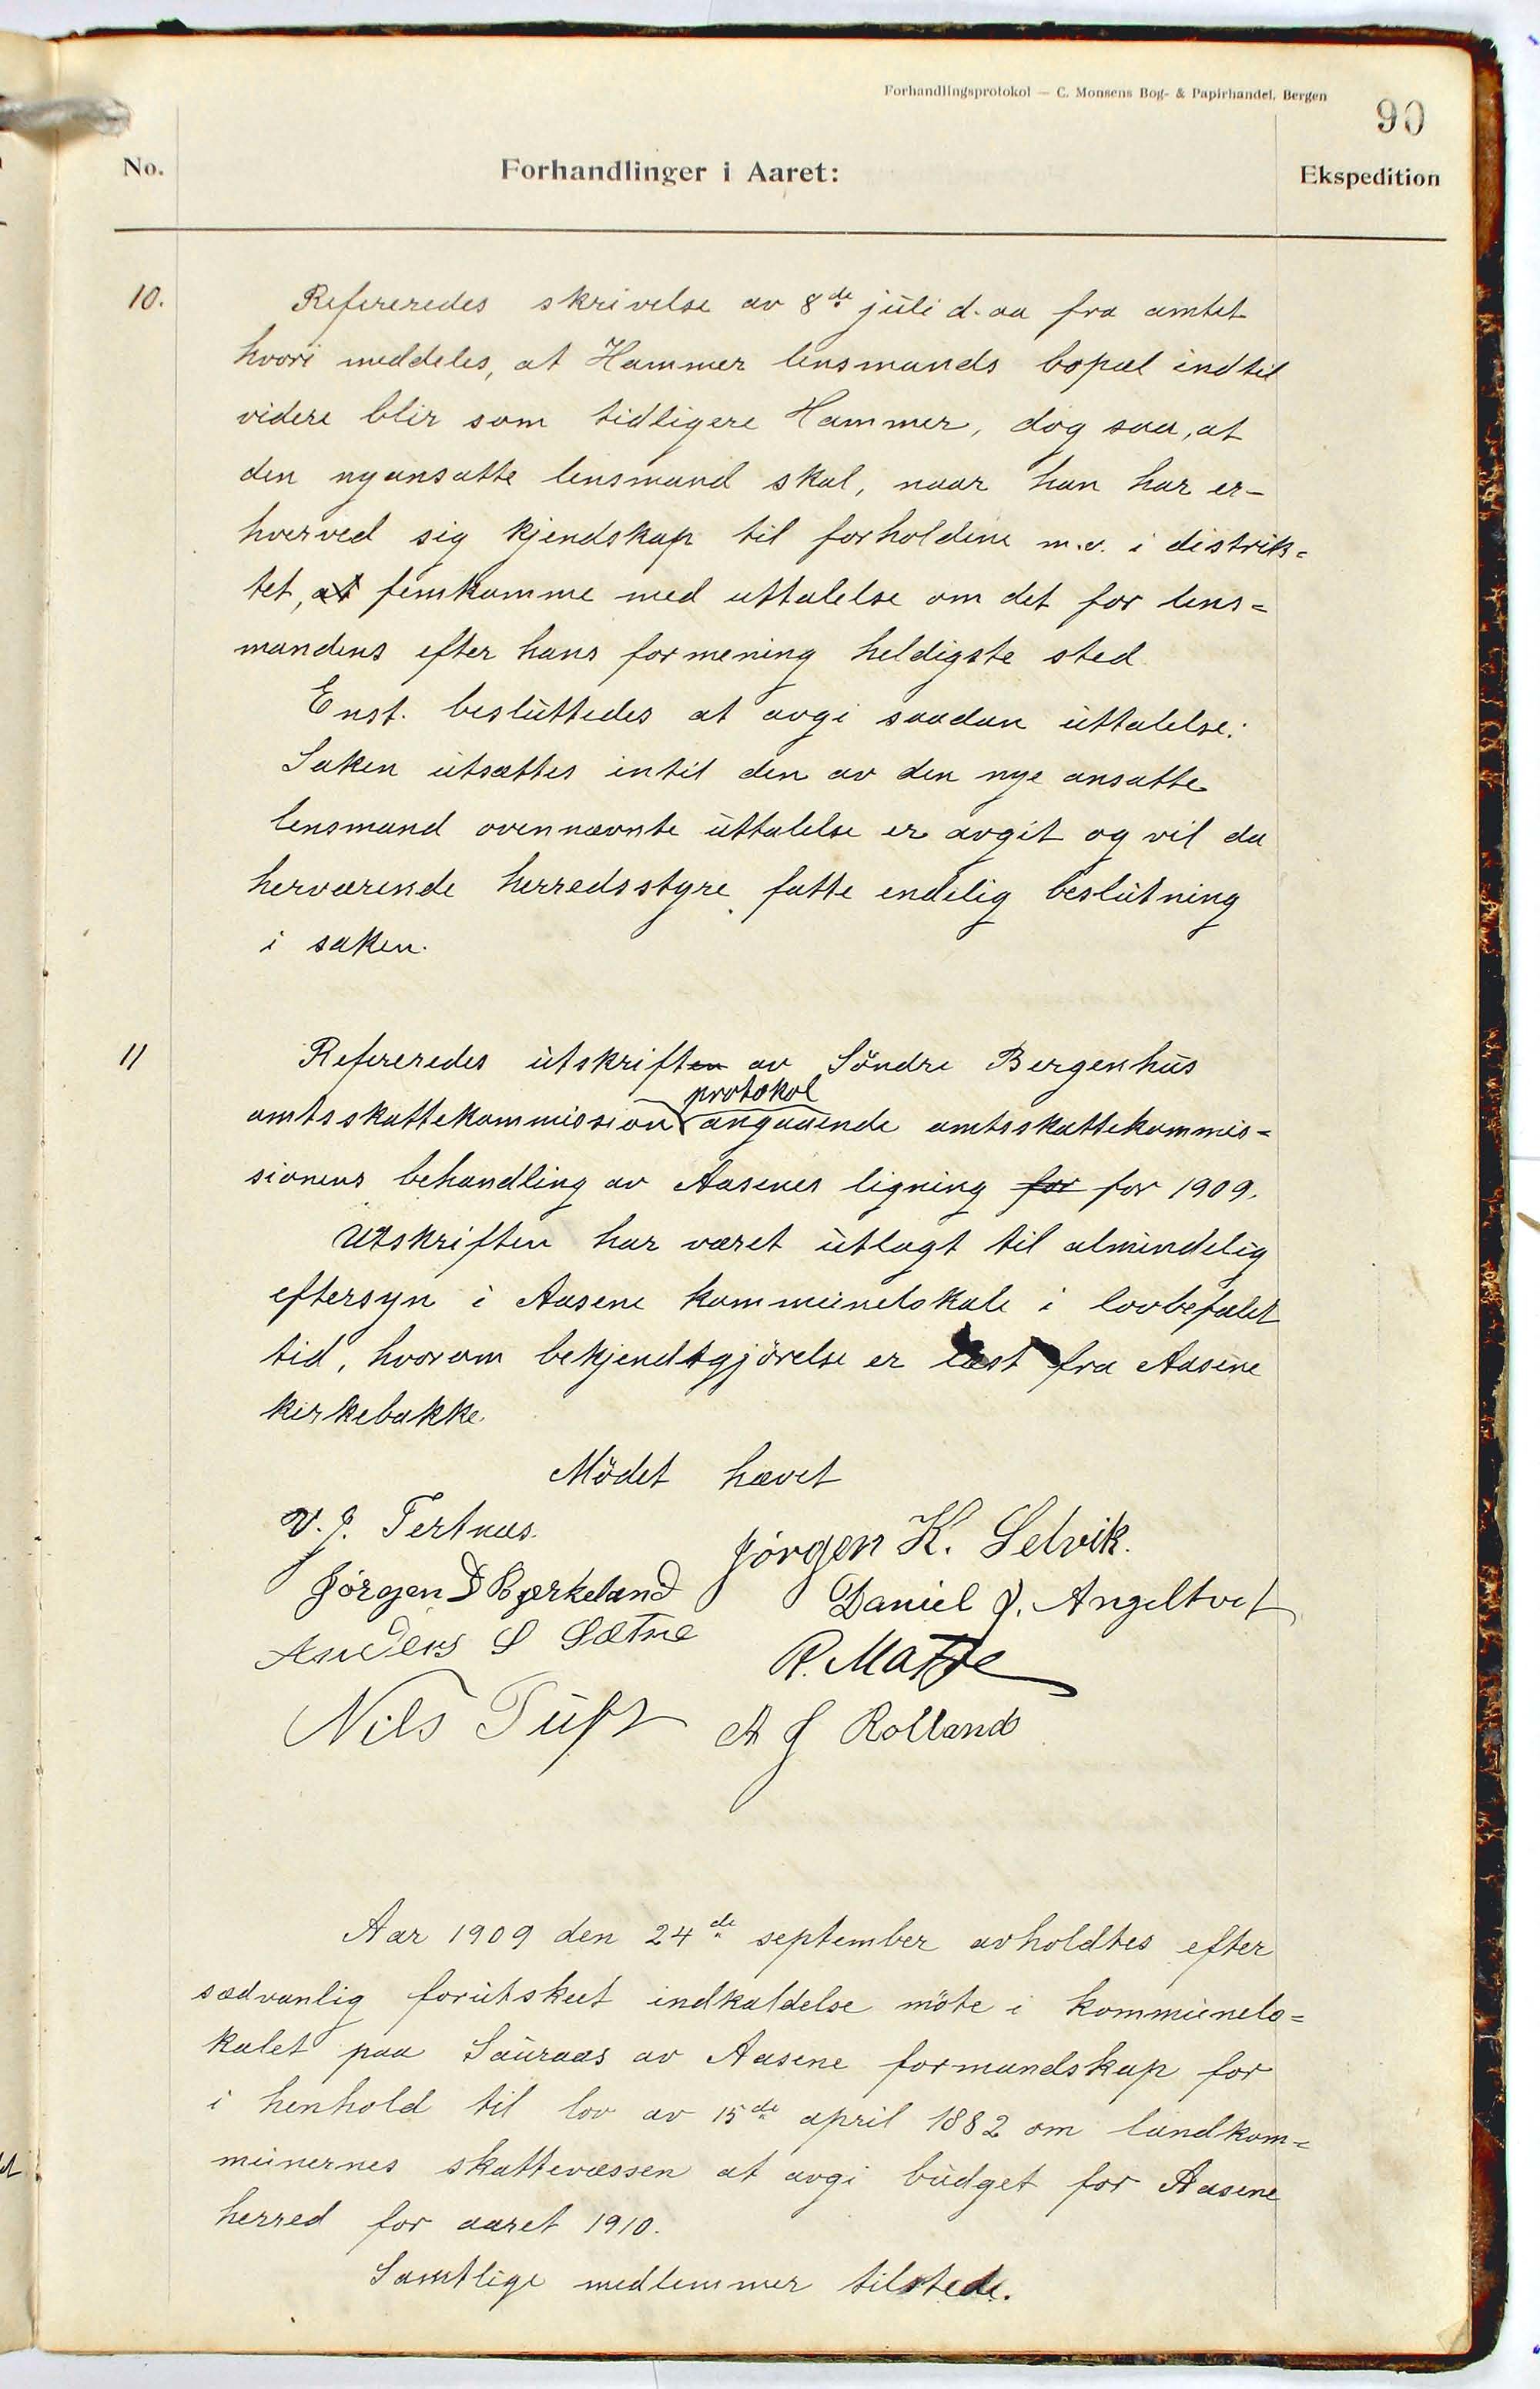 Forhandlingsprotokol — C. Monsens Bog- & Papirhandel, Bergen
90
No. Forhandlinger i Aaret: Ekspedition
10. Refereredes skrivelse av 8de juli d. aa fra amtet
hvori meddeles, at Hammer lensmands bopæl indtil
videre blir som tidligere Hammer, dog saa, at
den nyansatte lensmand skal, naar han har er-
hverved sig kjendskap til forholdene m.v. i distrik=
tet, at femkomme med uttalelse om det for lens=
mandens efter hans formening heldigste sted
Enst. besluttedes at avgi saadan uttalelse:
Saken utsættes intil den av den nye ansatte
lensmand ovennævnte uttalelse er avgit og vil da
herværende herredsstyre fatte endelig beslutning
i saken.
11 Refereredes utskriften av Söndre Bergenhus
protokol
amtsskattekommission angaaende amtsskattekommis=
sionens behandling av Aasenes ligning for for 1909.
Utskriften har været utlagt til almindelig
eftersyn i Aasene kommunelokale i lovbefalet
tid, hvorom bekjendtgjörelse er læst fra Aasene
kirkebakke.
Mödet hævet
V. J. Tertnæs. Jörgen K. Selvik.
Jörgen D Bjerkeland Daniel J. Angeltvet
Anders S Sætre R. Matre
Nils Tuft A J Rolland
Aar 1909 den 24de september avholdtes efter
sædvanlig forutskeet indkaldelse möte i kommunelo=
kalet paa Sauraas av Aasene formandskap for
i henhold til lov av 15de april 1882 om landkom=
munernes skattevæssen at avgi budget for Aasene
herred for aaret 1910.
Samtlige medlemmer tilstede.